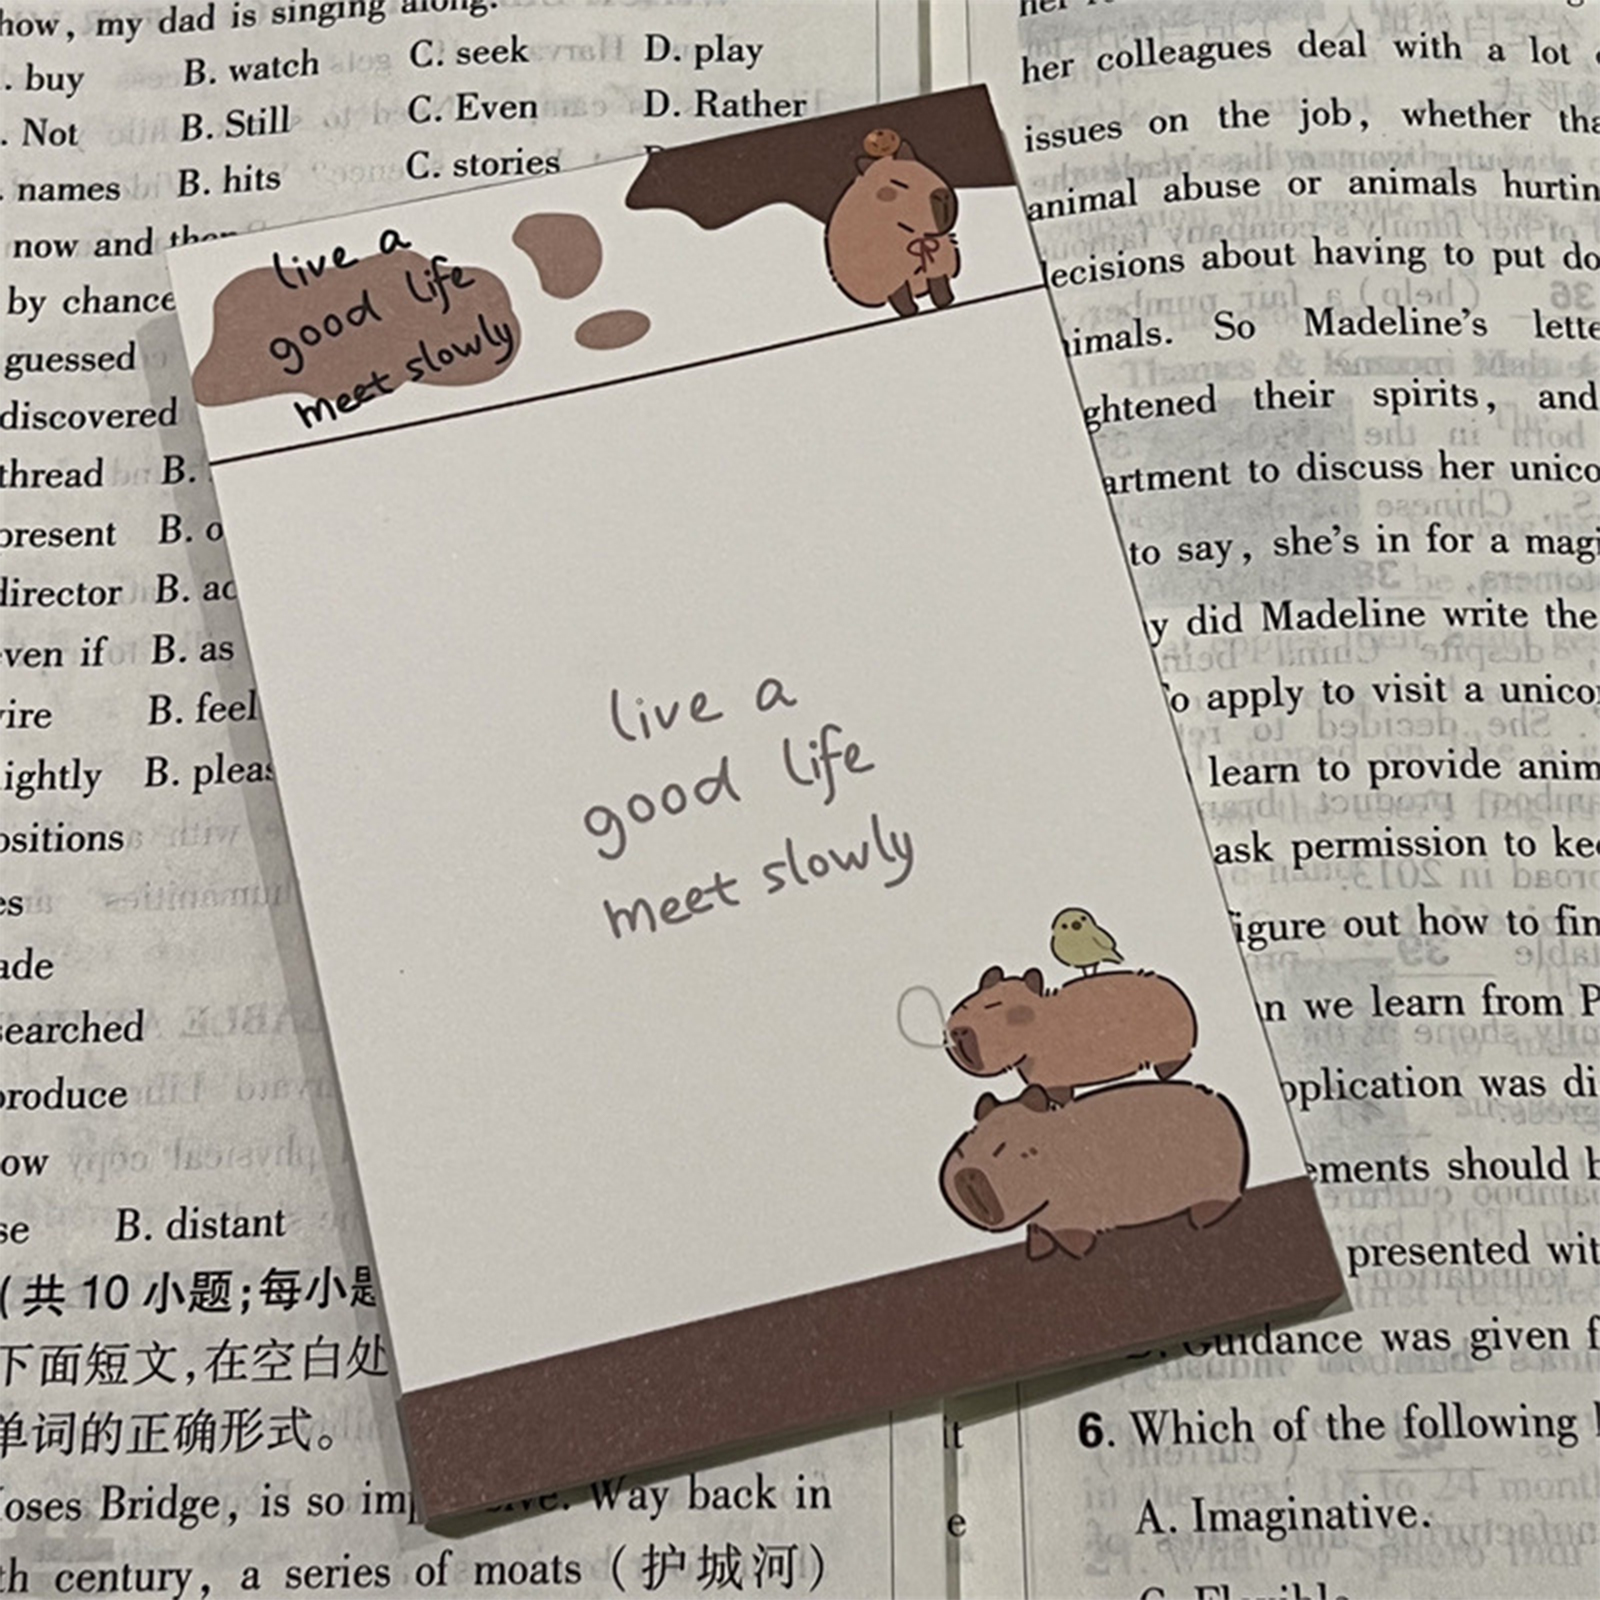 how, my dad is singing along.
. buy B. watch C. seek D. play
. Not B. Still C. Even D. Rather
. names B. hits C. stories
now and then
by chance
guessed
discovered
thread B.
present B. o
director B. ac
even if B. as
wire B. feel
lightly B. pleas
ositions
es
ade
searched
produce
ow
se B. distant
(共 10 小题;每小题
下面短文,在空白处
单词的正确形式。
Moses Bridge, is so impressive. Way back in
th century, a series of moats (护城河)
live a
good life
meet slowly
live a
good life
meet slowly
her colleagues deal with a lot
issues on the job, whether tha
animal abuse or animals hurtin
decisions about having to put do
nimals. So Madeline's lette
ghtened their spirits, and
artment to discuss her unico
to say, she's in for a magi
y did Madeline write the
To apply to visit a unico
learn to provide anim
ask permission to kee
igure out how to fin
n we learn from P
pplication was di
ements should b
presented wit
Guidance was given f
6. Which of the following
A. Imaginative.
C. Flexible.
lt
e